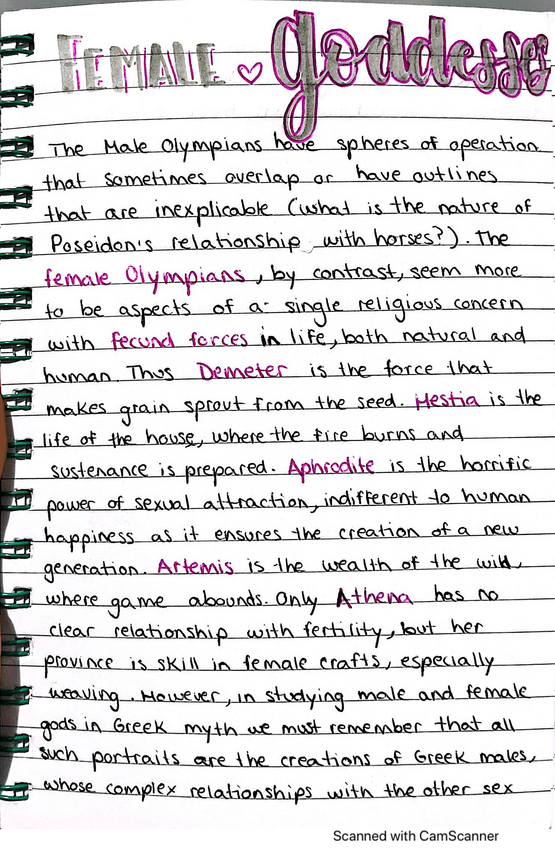 FEMALE ♡ goddesses
The Male Olympians have spheres of operation
that sometimes overlap or have outlines
that are inexplicable (what is the nature of
Poseidon's relationship with horses?). The
female Olympians, by contrast, seem more
to be aspects of a single religious concern
with fecund forces in life, both natural and
human. Thus Demeter is the force that
makes grain sprout from the seed. Hestia is the
life of the house, where the fire burns and
sustenance is prepared. Aphrodite is the horrific
power of sexual attraction, indifferent to human
happiness as it ensures the creation of a new
generation. Artemis is the wealth of the wild,
where game abounds. Only Athena has no
clear relationship with fertility, but her
province is skill in female crafts, especially
weaving. However, in studying male and female
gods in Greek myth we must remember that all
such portraits are the creations of Greek males,
whose complex relationships with the other sex
Scanned with CamScanner